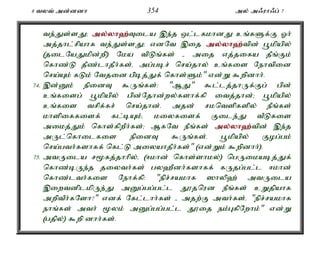 8 வலவ் அன்னனா 354 அல் அஃராஃப் 7
வந்துள்ளது; அல்லாஹ்வுடைய இந்த ஒட்டகமானது உங்களுக்கு ஓர்
அத்தாட்சியாக வந்துள்ளது; எனவே இதை அல்லாஹ்வின் பூமியில்
(தடையேதுமின்றி) மேய விடுங்கள் - அதை எத்தகைய தீங்கும்
கொண்டு தீண்டாதீர்கள். அப்படிச் செய்தால் உங்களை நோவினை
செய்யும் கடும் வேதனை பிடித்துக் கொள்ளும்” என்று கூறினார்.
74. இன்னும் நினைவு கூருங்கள்: “ஆது” கூட்டத்தாருக்குப் பின்
உங்களைப் பூமியில் பின்தோன்றல்களாக்கி வைத்தான்; பூமியில்
உங்களை வசிக்கச் செய்தான். அதன் சமவெளிகளில் நீங்கள்
மாளிகைகளைக் கட்டியும், மலைகளைக் குடைந்து வீடுகளை
அமைத்தும் கொள்கிறீர்கள்; ஆகவே நீங்கள் அல்லாஹ்வின் இந்த
அருட்கொடைகளை நினைவு கூருங்கள். பூமியில் குழப்பம்
செய்பவர்களாகக் கெட்டு அலையாதீர்கள்” (என்றும் கூறினார்).
75. அவருடைய சமூகத்தாரில், (ஈமான் கொள்ளாமல்) பெருமையடித்துக்
கொண்டிருந்த தலைவர்கள் பலஹீனர்களாகக் கருதப்பட்ட ஈமான்
கொண்டவர்களை நோக்கி: “நிச்சயமாக ஸாலிஹ் அவருடைய
இறைவனிடமிருந்து அனுப்பப்பட்ட தூதரென நீங்கள் உறுதியாக
அறிவீர்களோ?” எனக் கேட்டார்கள் - அதற்கு அவர்கள்: “நிச்சயமாக
நாங்கள் அவர் மூலம் அனுப்பப்பட்ட தூதை நம்புகிறோம்” என்று
(பதில்) கூறினார்கள்.